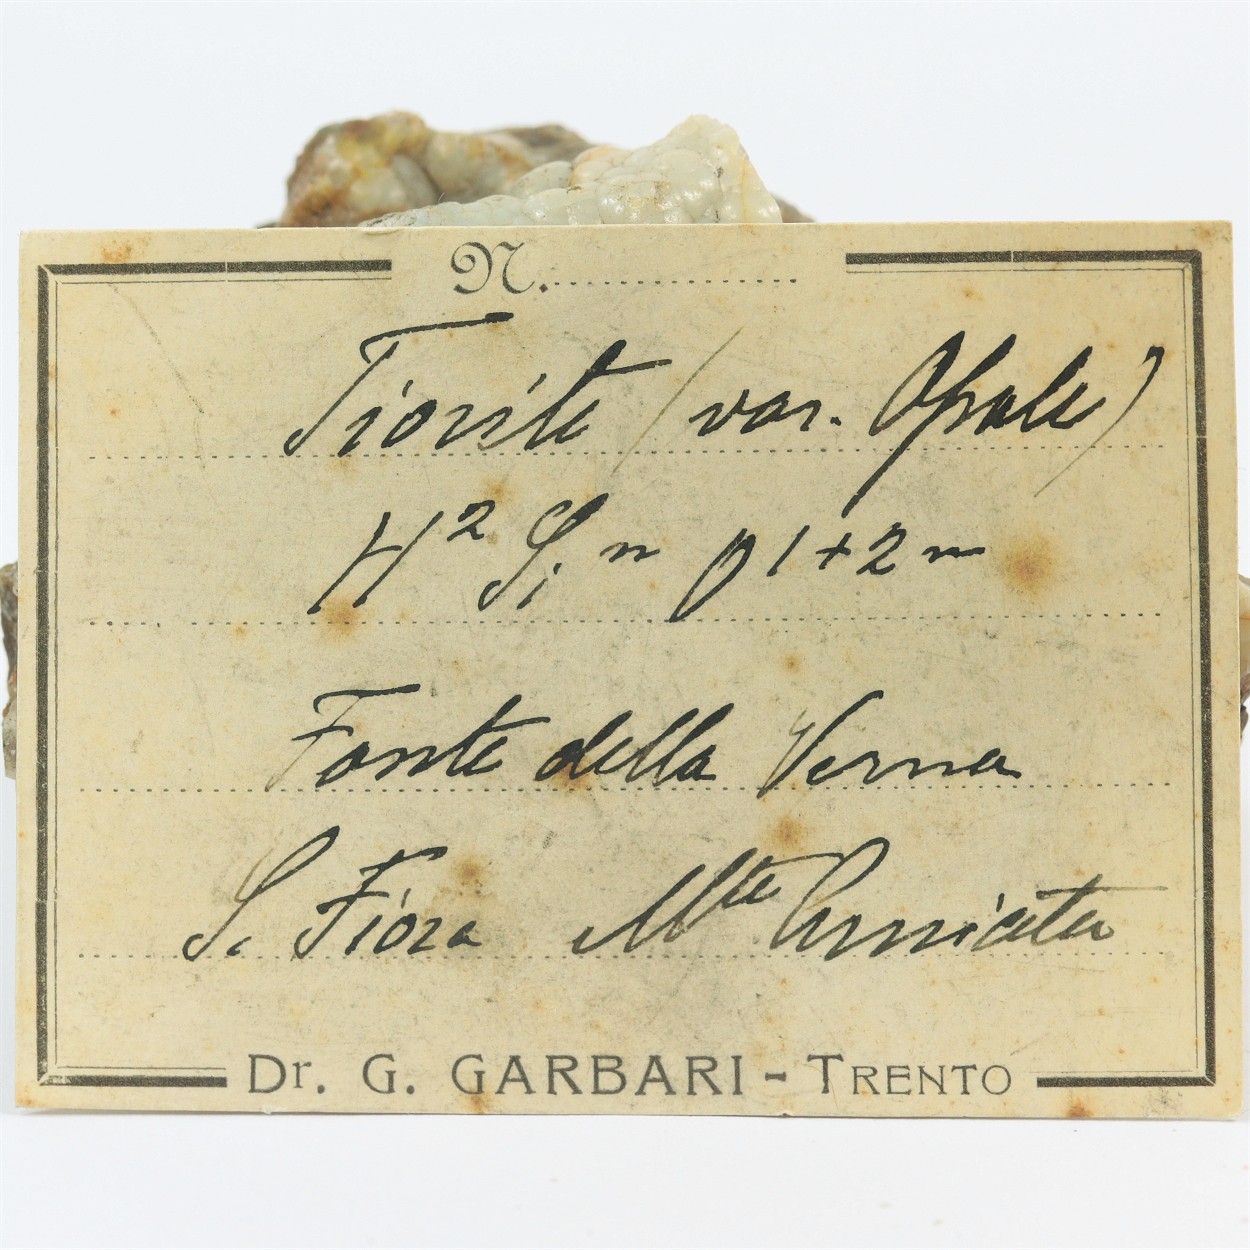 N.
Fiorite (var. Opale)
H² Siⁿ O¹⁺²ⁿ
Fonte della Verna
S. Fiora Mᵗᵉ Amiata
Dr. G. GARBARI - TRENTO